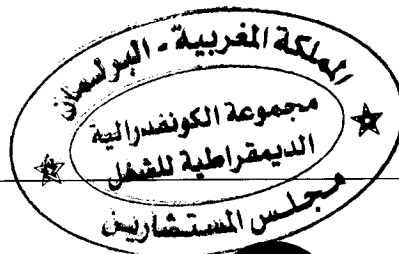 المملكة المغربية - البرلمان
مجموعة الكونفدرالية
الديمقراطية للشغل
مجلس المستشارين